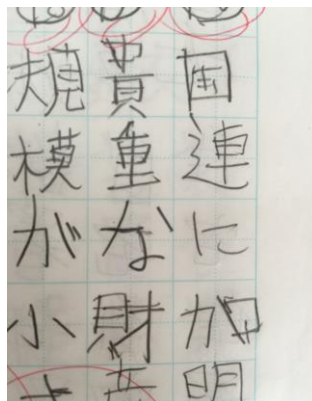 国連に加
貴重な財
規模が小